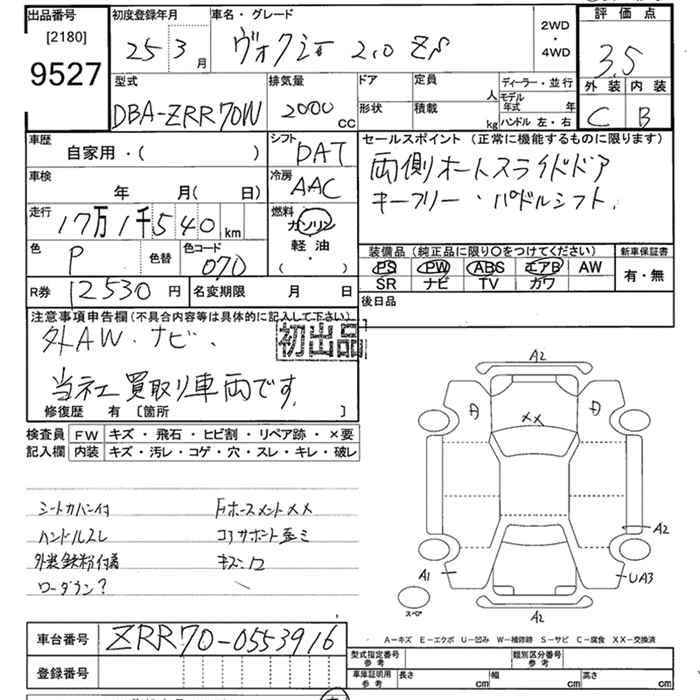 出品番号 初度登録年月 車名・グレード 評価点
[2180] 2WD
9527 25 3月 ヴォクシー 2.0 ZS ・4WD 3.5
外装 内装
C B
型式 排気量 ドア 定員 人 ディーラー・並行
モデル年式 年
DBA-ZRR70W 2000cc 形状 積載 kg ハンドル 左・右
車歴 シフト セールスポイント (正常に機能するものに限ります)
自家用・( ) DAT 両側オートスライドドア
車検 冷房 キーフリー・パドルシフト,
年 月( 日) AAC
走行 燃料
17万1千540km ガソリン
色 色替 色コード 軽油 装備品 (純正品に限り〇をつけてください) 新車保証書
P 070 ( ・ ) PS PW ABS エアB AW 有・無
SR ナビ TV カワ
R券 12530円 名変期限 月 日 後日品
注意事項申告欄 (不具合内容等は具体的に記入して下さい)
外AW・ナビ、 初出品
当社買取り車両です.
修復歴 有 [箇所 ]
検査員 FW キズ・飛石・ヒビ割・リペア跡・×要
記入欄 内装 キズ・汚レ・コゲ・穴・スレ・キレ・破レ
A2
XX
シートカバー付 Fホースメントxx
ハンドルスレ コアサポート歪ミ
外装鉄粉付着
ローダウン?
A2
A1
UA3
スペア
A2
車台番号 ZRR70-0553916
A-キズ E-エクボ U-凹み W-補修跡 S-サビ C-腐食 XX-交換済
登録番号
型式指定番号 参考 類別区分番号 参考
車庫証明用 参考 長さ cm 幅 cm 高さ cm